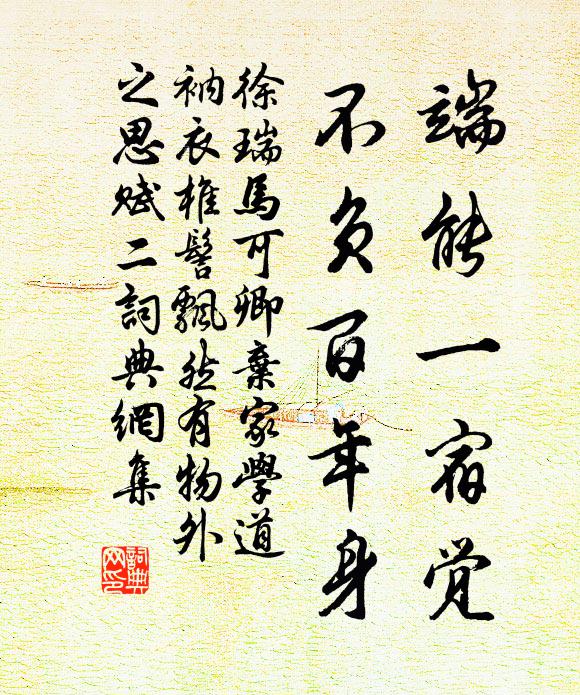 端能一宿觉
不负百年身
徐瑞馬可卿棄家學道
衲衣椎髻飄然有物外
之思赋二詞典網集
詞典
网印